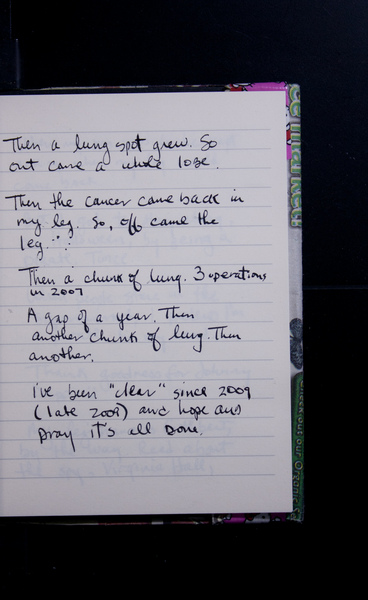 Then a lung spot grew. So
out came a whole lobe.
Then the cancer came back in
my leg. So, off came the
leg...
Then a chunk of lung. 3 operations
in 2007
A gap of a year. Then
another chunk of lung. Then
another.
I've been "clear" since 2009
(late 2009) and hope and
pray it's all done.